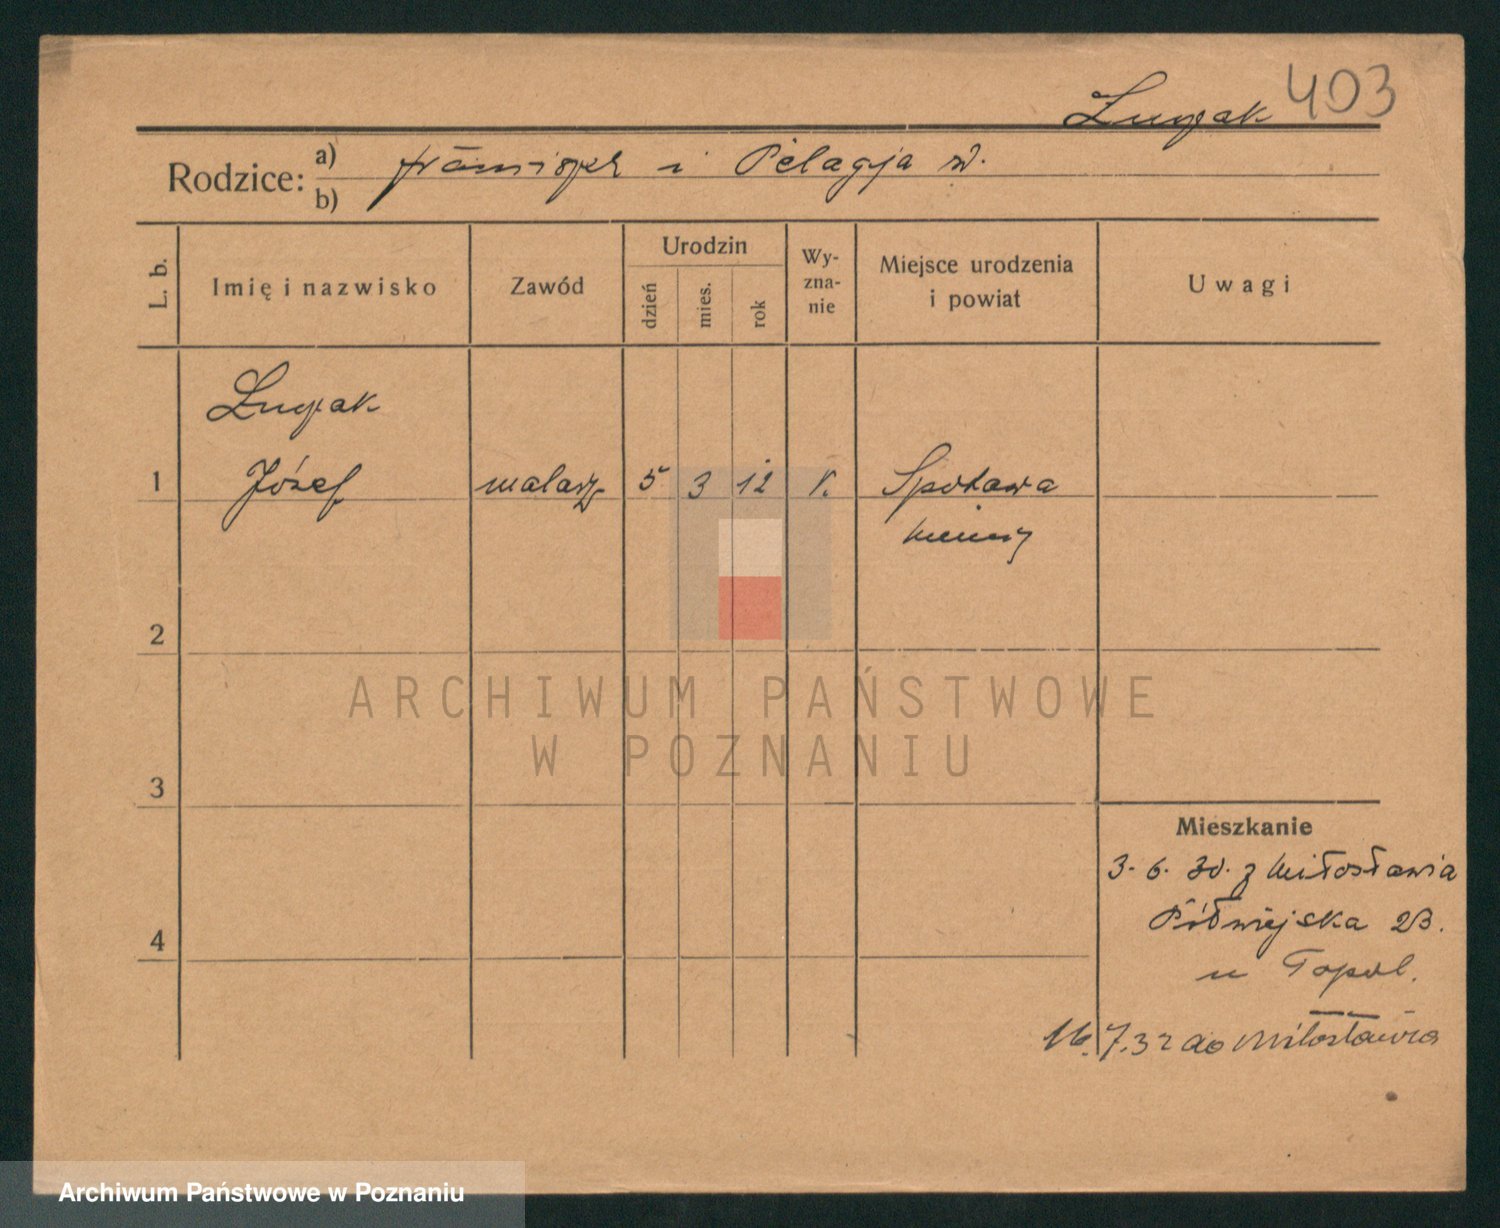 403
Rodzice: a) i Pelagja
b)
L. b. Imię i nazwisko Zawód Urodzin dzień mies. rok Wy-zna-nie Miejsce urodzenia i powiat Uwagi
1 Józef malarz 5 3 12
2
3
4
Mieszkanie
3. 6. 30. z Miłosławia
Półwiejska 23.
u Topol.
16.7.32 do Miłosławia
ARCHIWUM PAŃSTWOWE
W POZNANIU
Archiwum Państwowe w Poznaniu